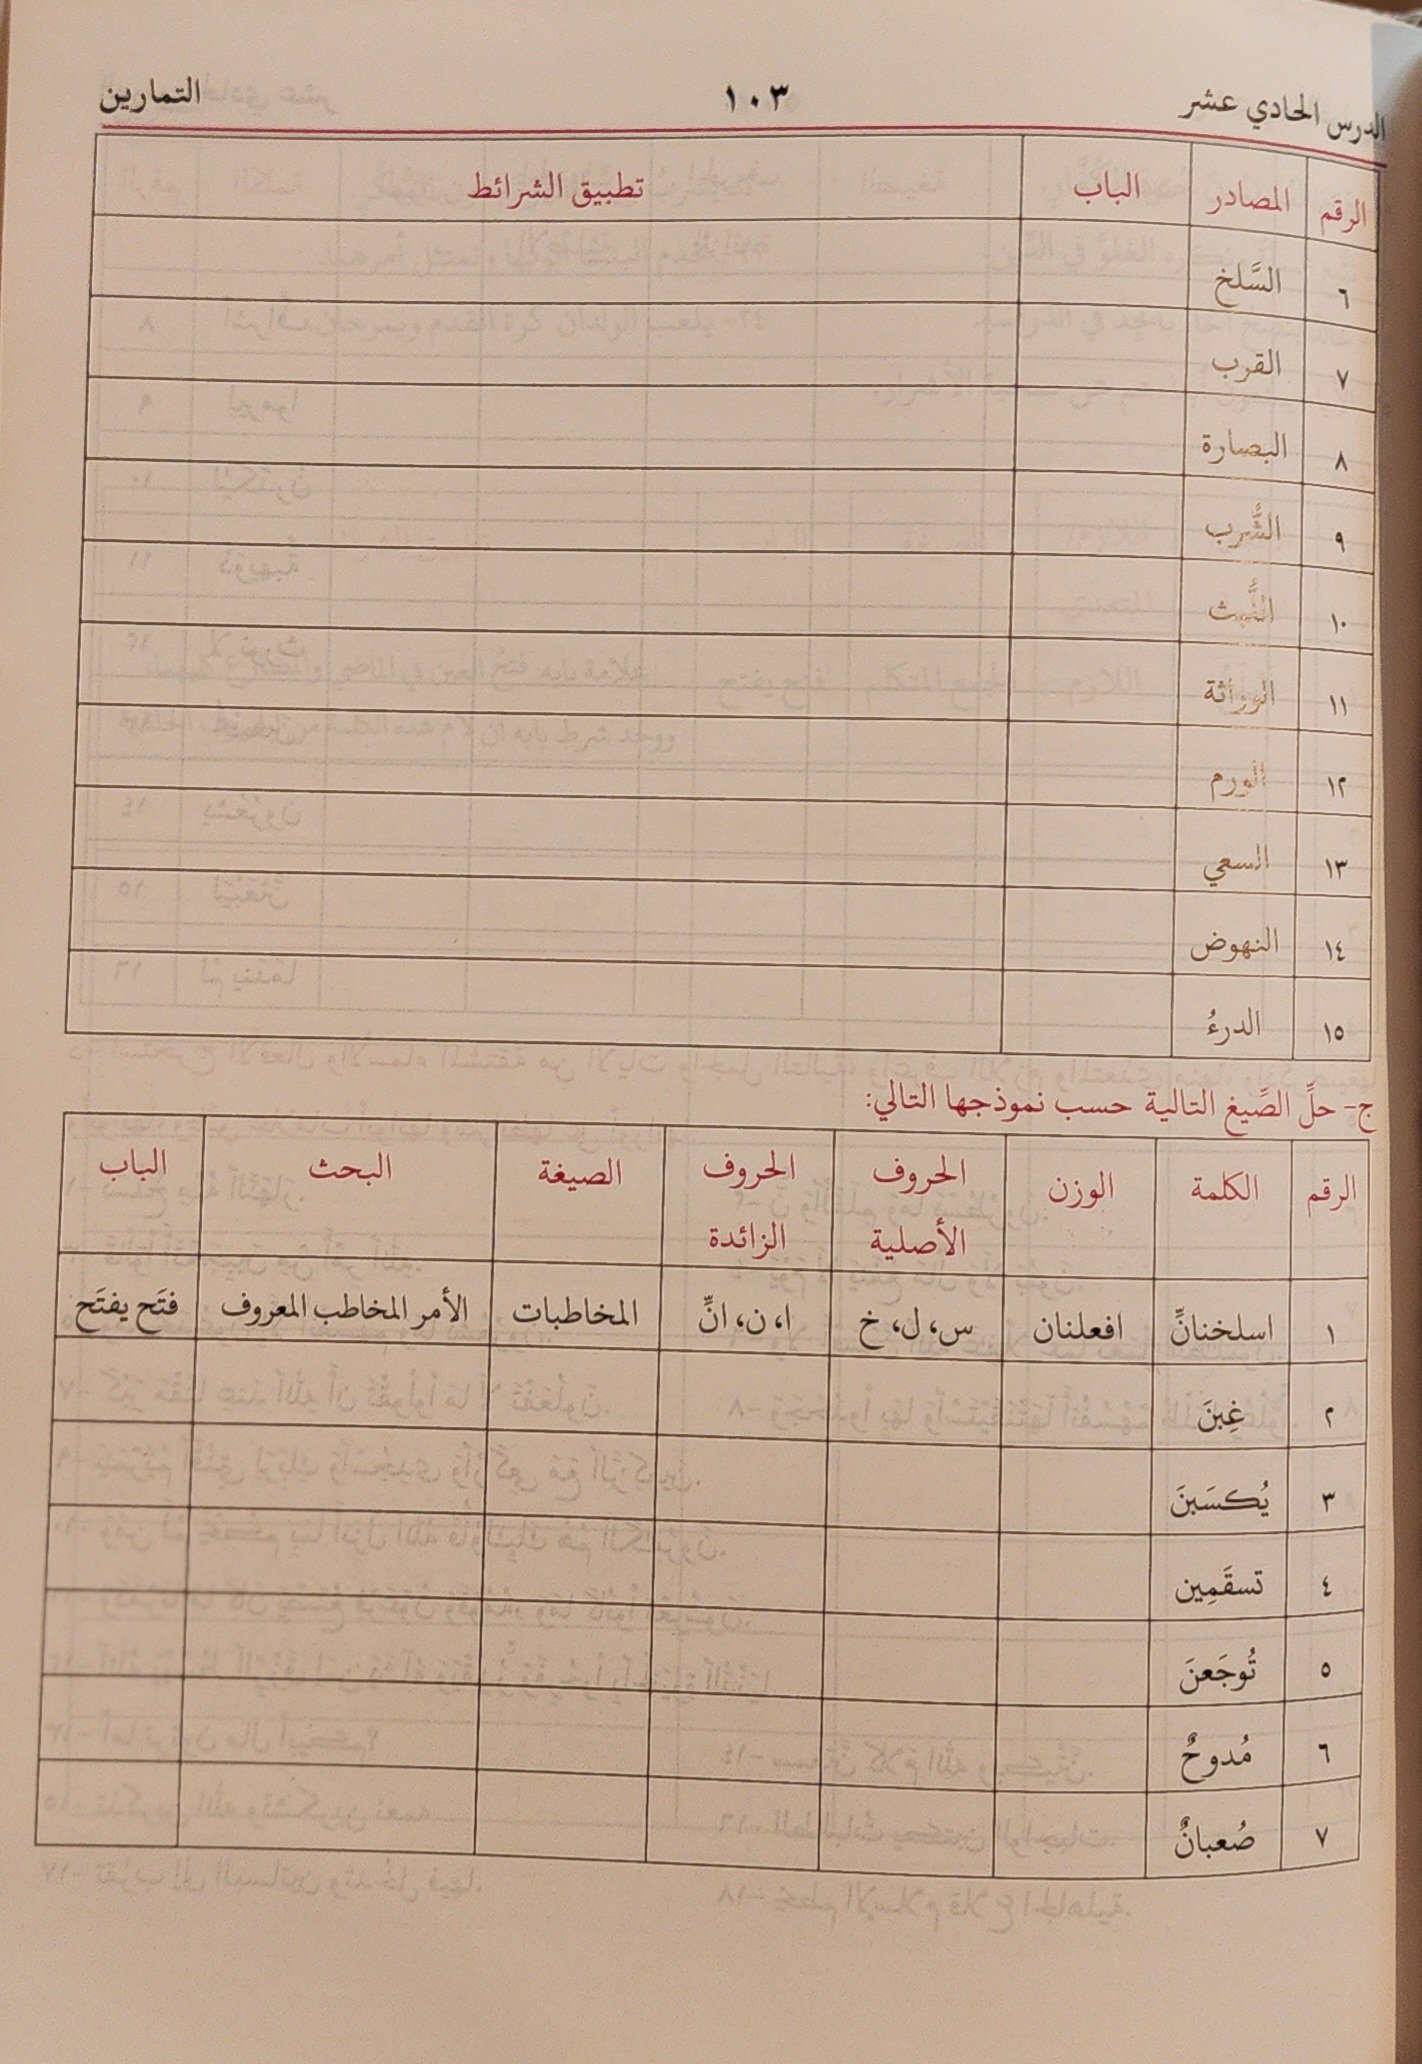 الدرس الحادي عشر ١٠٣ التمارين
الرقم المصادر الباب تطبيق الشرائط
٦ السَّلخ
٧ القرب
٨ البصارة
٩ الشُّرب
١٠ اللُّبث
١١ الوراثة
١٢ الورم
١٣ السعي
١٤ النهوض
١٥ الدرءُ
ج- حلِّ الصِّيغ التالية حسب نموذجها التالي:
الرقم الكلمة الوزن الحروف الأصلية الحروف الزائدة الصيغة البحث الباب
١ اسلخنانِّ افعلنان س، ل، خ ا، ن، انِّ المخاطبات الأمر المخاطب المعروف فتَح يفتَح
٢ غِبنَ
٣ يُكسَبنَ
٤ تسقَمِين
٥ تُوجَعنَ
٦ مُدوحٌ
٧ صُعبانٌ